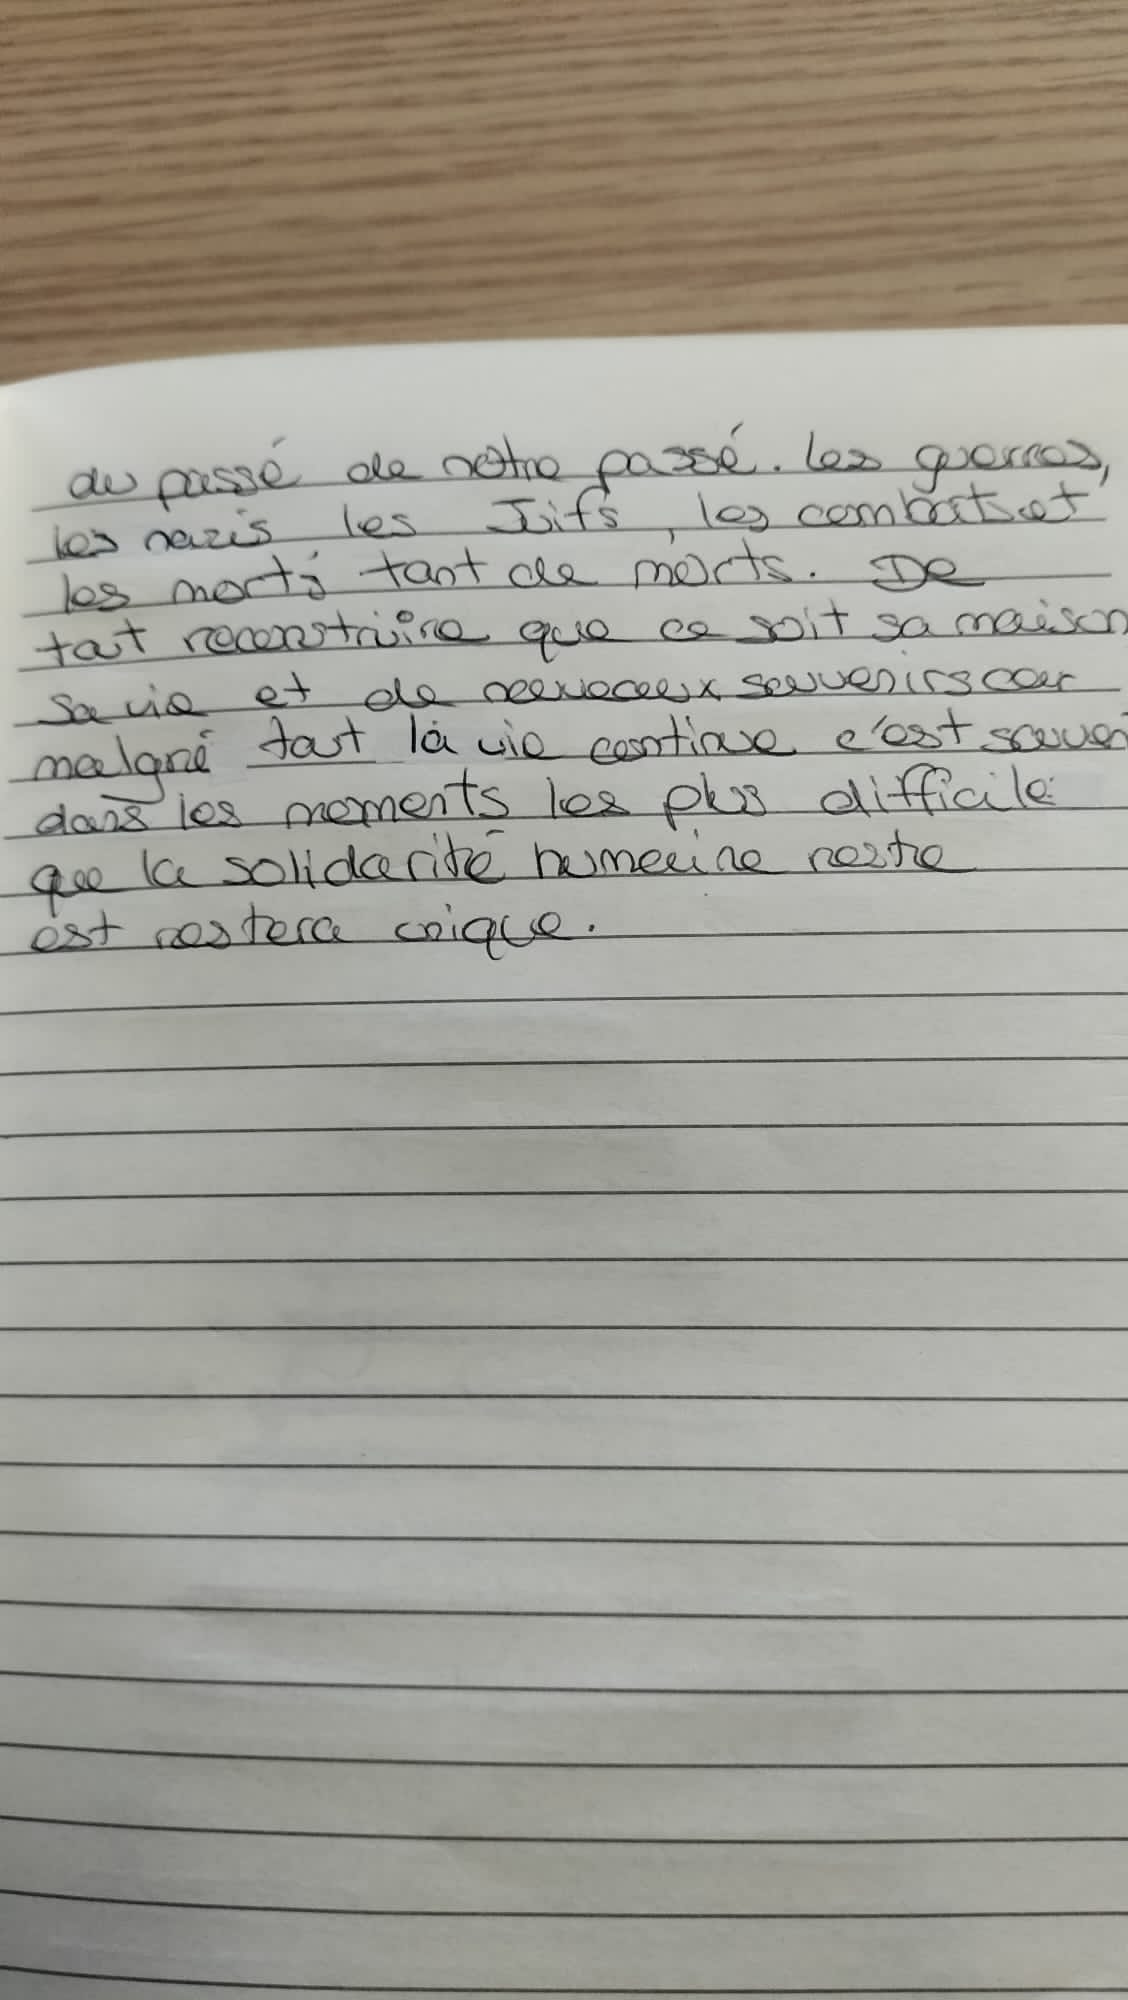 du passé de notre passé. Les guerres,
les nazis les Juifs, les combats et
les morts, tant de morts. De
tout reconstruire que ce soit sa maison,
sa vie et de nouveaux souvenirs car
malgré tout la vie continue c'est souven
dans les moments les plus difficile
que la solidarité humaine reste
est restera unique.